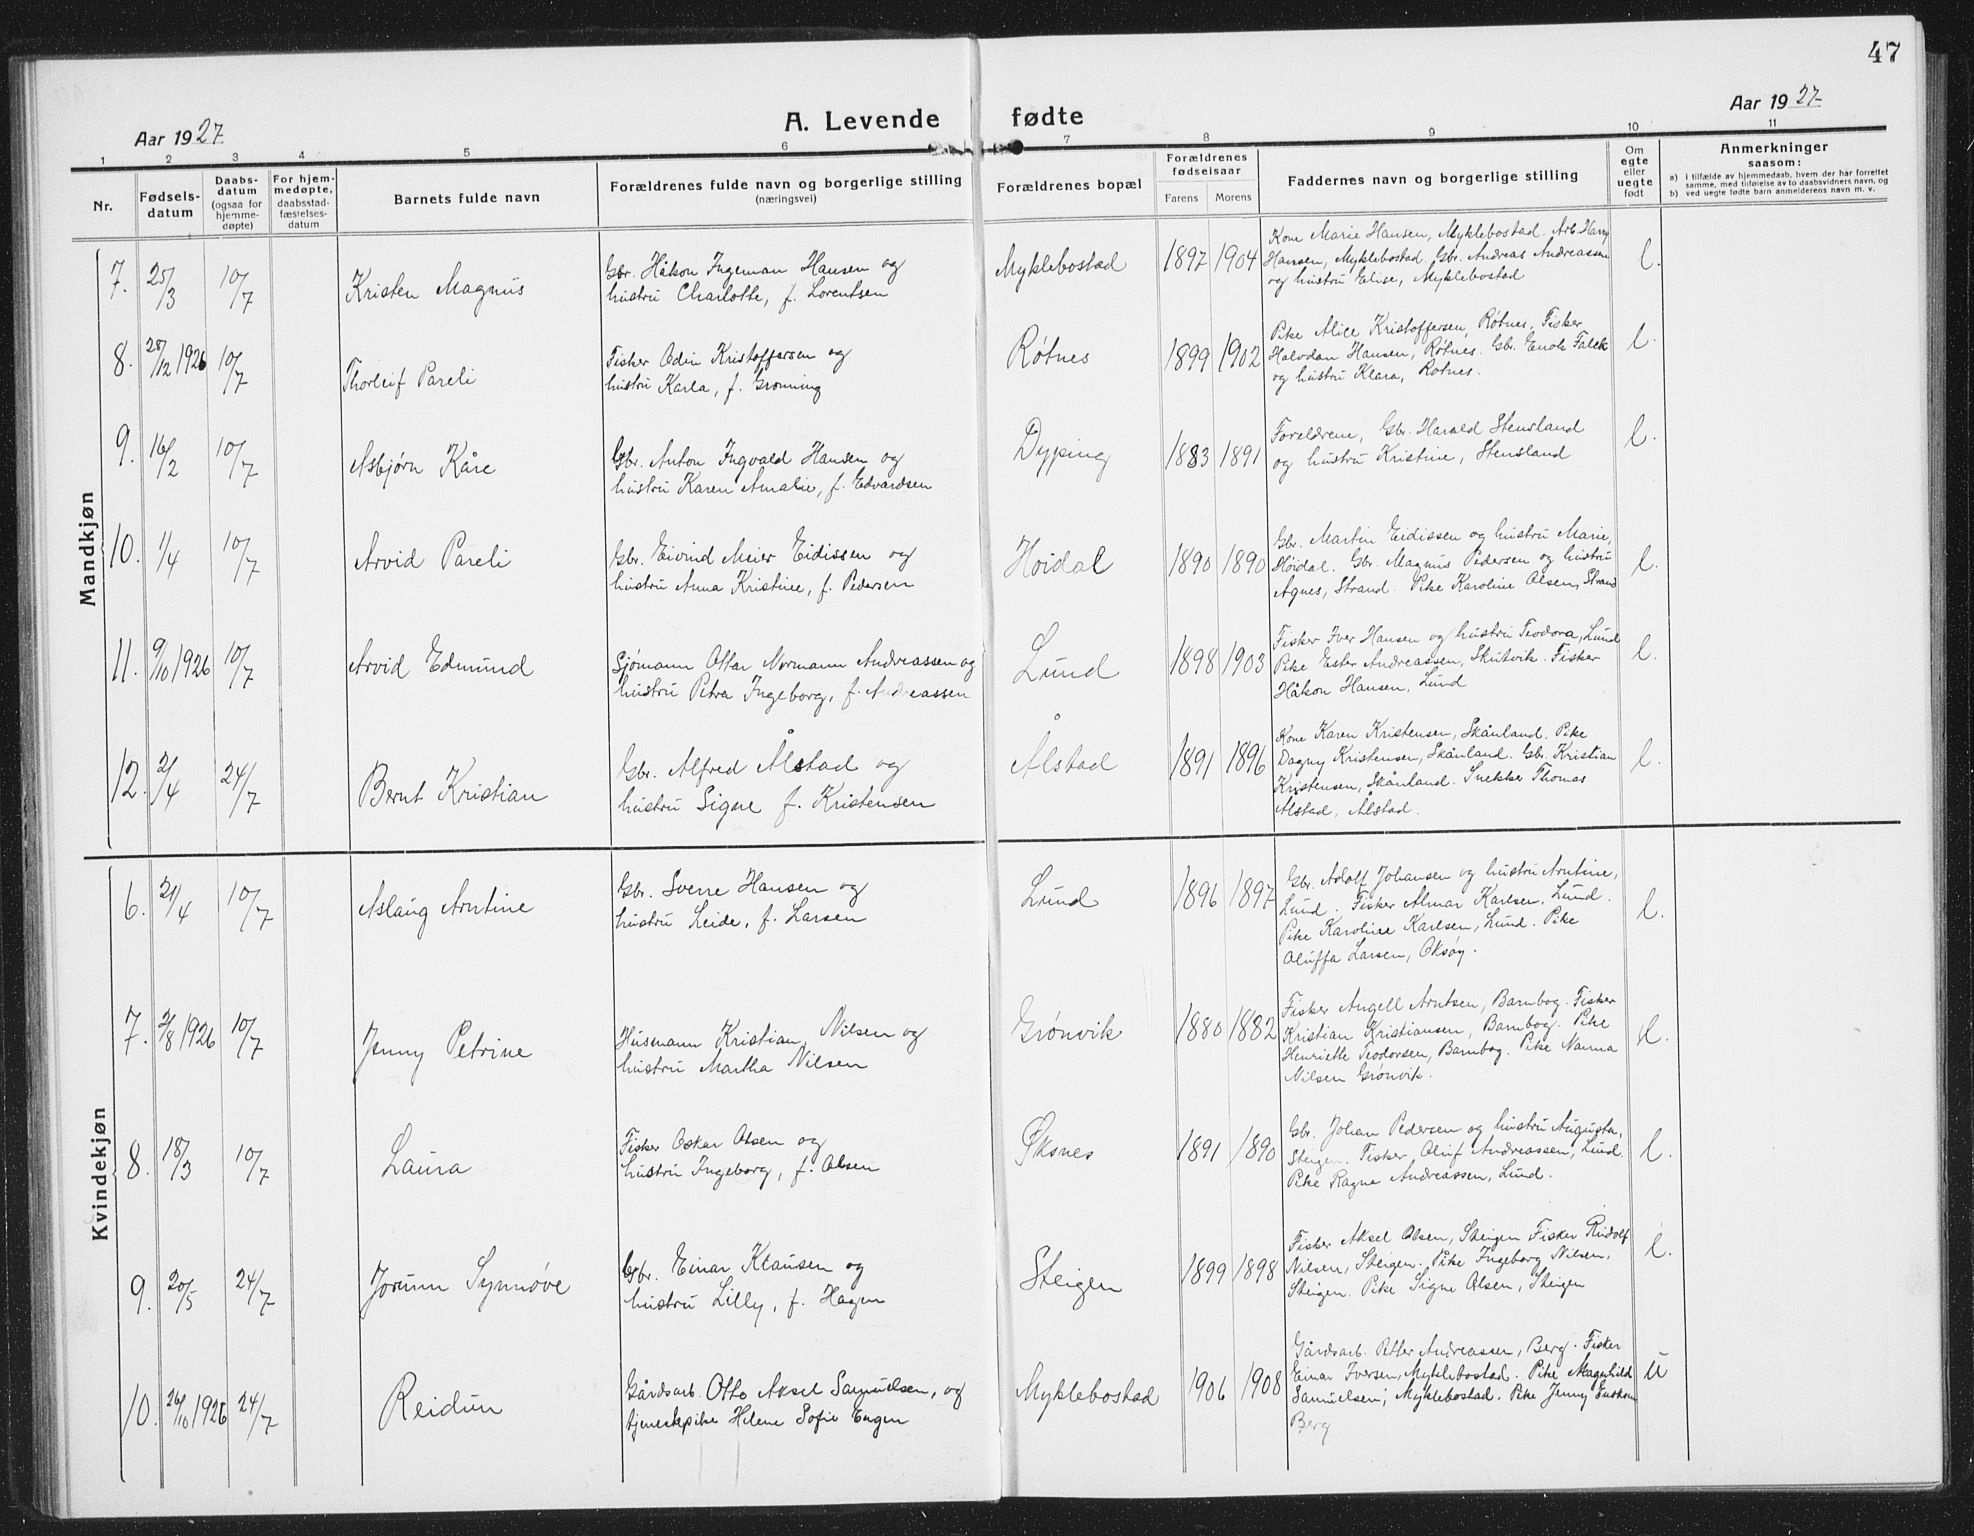 47
Aar 1927
A. Levende fødte
Aar 1927
1 2 3 4 5 6 7 8 9 10 11
Nr.
Fødsels-
datum
Daabs-
datum
(ogsaa for
hjemme-
døpte)
For hjem-
medøpte,
daabsstad-
fæstelses-
datum
Barnets fulde navn
Forældrenes fulde navn og borgerlige stilling
(næringsvei)
Forældrenes bopæl
Forældrenes
fødselsaar
Farens Morens
Faddernes navn og borgerlige stilling
Om
egte
eller
uegte
født
Anmerkninger
saasom:
a) i tilfælde av hjemmedaab, hvem der har forrettet
samme, med tilføielse av to daabsvidners navn, og
b) ved uegte fødte barn anmelderens navn m. v.
Mandkjøn
7. 25/3 10/7 Kristen Magnus
Gbr. Håkon Ingeman Hansen og
hustru Charlotte, f. Lorentsen
Myklebostad 1897 1904
Kone Marie Hansen, Myklebostad. Arb. Harry
Hansen, Myklebostad. Gbr. Andreas Andreassen
og hustru Elise, Myklebostad
l.
8. 28/12 1926 10/7 Thorleif Pareli
Fisker Odin Kristoffersen og
hustru Karla, f. Grønning
Røtnes 1899 1902
Pike Alice Kristoffersen, Røtnes. Fisker
Halvdan Hansen, Røtnes. Gbr. Enok Falck
og hustru Klara, Rotnes.
l.
9. 16/2 10/7 Asbjørn Kåre
Gbr. Anton Ingvald Hansen og
hustru Karen Amalie, f. Edvardsen
Dyping 1883 1891
Foreldrene, Gbr. Harald Stensland
og hustru Kristine, Stensland
l.
10. 1/4 10/7 Arvid Pareli
Gbr. Eivind Meier Eidissen og
hustru Anna Kristine, f. Pedersen
Høidal 1890 1890
Gbr. Martin Eidissen og hustru Marie,
Høidal. Gbr. Magnus Pedersen og hustru
Agnes, Strand. Pike Karoline Olsen, Strand
l.
11. 9/10 1926 10/7 Arvid Edmund
Sjømann Ottar Normann Andreassen og
hustru Petra Ingeborg, f. Andreassen
Lund 1898 1903
Fisker Iver Hansen og hustru Teodora, Lund
Pike Ester Andreassen, Skutvik. Fisker
Håkon Hansen, Lund
l.
12. 2/4 24/7 Bernt Kristian
Gbr. Alfred Ålstad og
hustru Signe f. Kristensen
Ålstad 1891 1896
Kone Karen Kristensen, Skånland. Pike
Dagny Kristensen, Skånland. Gbr. Kristian
Kristensen, Skånland. Snekker Thomas
Alstad, Ålstad.
l.
Kvindekjøn
6. 21/4 10/7 Aslaug Arntine
Gbr. Sverre Hansen og
hustru Leide, f. Larsen
Lund 1896 1897
Gbr. Adolf Johansen og hustru Arntine,
Lund. Fisker Almar Karlsen, Lund.
Pike Karoline Karlsen, Lund. Pike
Oluffa Larsen, Oksøy.
l.
7. 2/8 1926 10/7 Jenny Petrine
Husmann Kristian Nilsen og
hustru Martha Nilsen
Grønvik 1880 1882
Fisker Angell Arntsen, Barnbog. Fisker
Kristian Kristiansen, Barnbog. Pike
Henriette Teodorsen, Barnbog. Pike Nanna
Nilsen Grønvik.
l.
8. 18/3 10/7 Laura
Fisker Oskar Olsen og
hustru Ingeborg, f. Olsen
Øksnes 1891 1890
Gbr. Johan Pedersen og hustru Augusta,
Steigen. Fisker Oluf Andreassen, Lund.
Pike Ragna Andreassen, Lund.
l.
9. 20/5 24/7 Jorunn Synnøve
Gbr. Einar Klausen og
hustru Lilly, f. Hagen
Steigen 1899 1898
Fisker Aksel Olsen, Steigen Fisker Rudolf
Nilsen, Steigen. Pike Ingeborg Nilsen,
Steigen. Pike Signe Olsen, Steigen
l.
10. 26/10 1926 24/7 Reidun
Gårdsarb. Otto Aksel Samuelsen, og
tjenestepike Helene Sofie Engen
Myklebostad 1906 1908
Gårdsarb. Petter Andreassen, Berg. Fisker
Einar Iversen, Myklebostad. Pike Magnhild
Samuelsen, Myklebostad. Pike Jenny
Berg
u